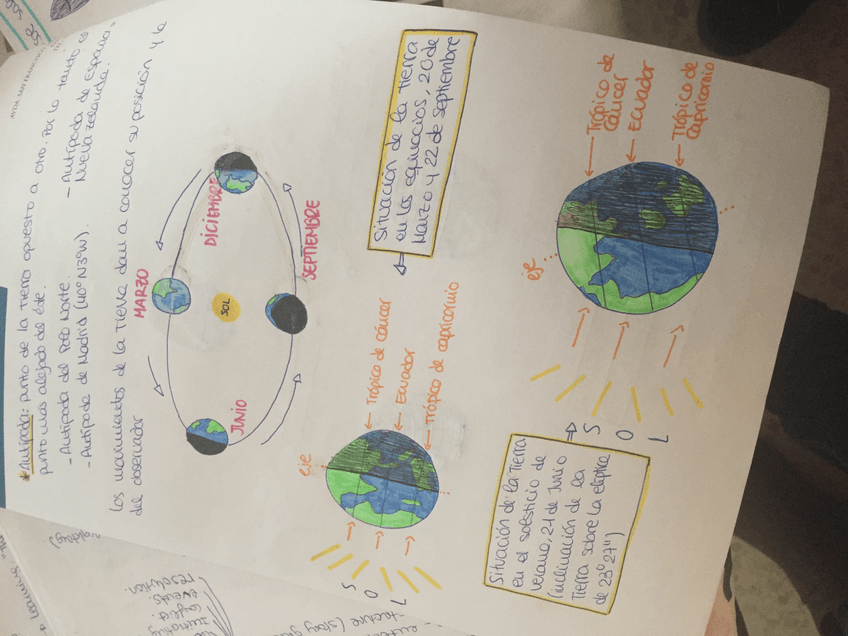 * Antípoda: punto de la tierra opuesto a otro. Por lo tanto es
punto más alejado del éste.
- Antípoda del Polo Norte.
- Antípoda de Madrid (40º N3ºW).
- Antípoda de España.
Nueva Zelanda.
Los movimientos de la Tierra dan a conocer su posición y la
del observador
MARZO
DICIEMBRE
SOL
JUNIO
SEPTIEMBRE
Situación de la tierra
en los equinocios, 20 de
Marzo y 22 de septiembre
eje
Trópico de cáncer
Ecuador
Trópico de capricornio
SOL
eje
Trópico de
cáncer
Ecuador
Trópico de
capricornio
SOL
Situación de la tierra
en el solsticio de
verano, 21 de Junio
(inclinación de la
Tierra sobre la elíptica
de 23º 27")